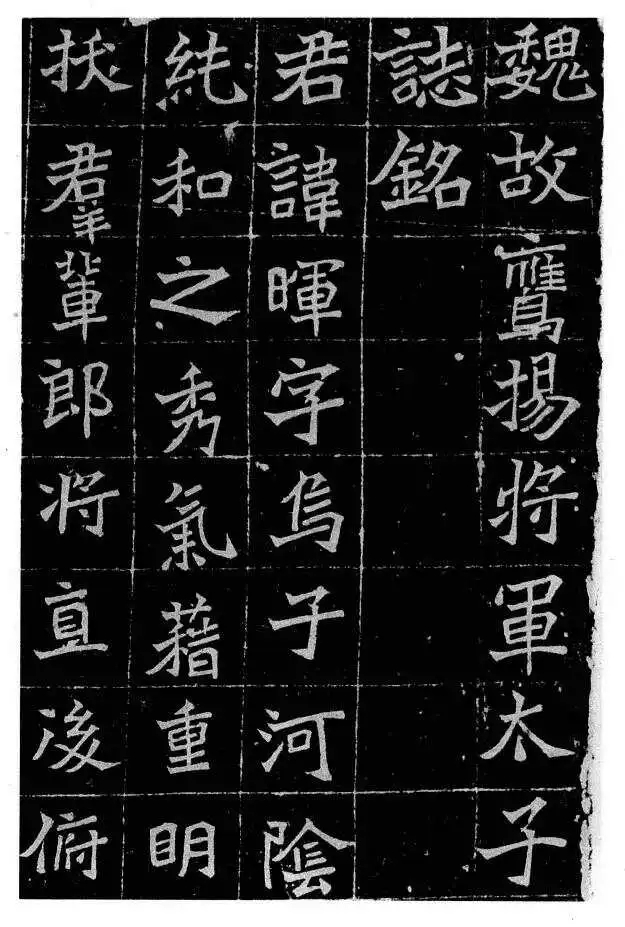 魏故鷹揚将軍太子
誌銘
君諱暉字烏子河陰
純和之秀氣藉重明
拔羣軰郎将直後俯